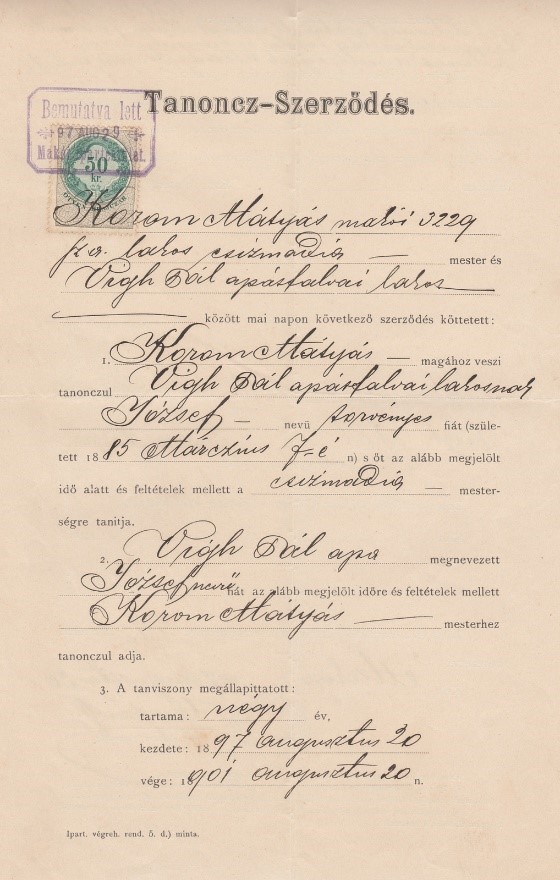 Tanoncz-Szerződés.
Bemutatva lett
97 AUG 29
Makó
50
kr.
Korom Mátyás makói 3229
sz. a. lakos csizmadia — mester és
Vigh Pál apátfalvai lakos
között mai napon következő szerződés köttetett:
1. Korom Mátyás — magához veszi
tanonczul Vigh Pál apátfalvai lakosnak
József — nevü törvényes fiát (szüle-
tett 1885 Márczius 7-é n) s őt az alább megjelölt
idő alatt és feltételek mellett a csizmadia — mester-
ségre tanitja.
2. Vigh Pál apa megnevezett
József nevü fiát az alább megjelölt időre és feltételek mellett
Korom Mátyás — mesterhez
tanonczul adja.
3. A tanviszony megállapittatott:
tartama: négy év,
kezdete: 1897 augusztus 20
vége: 1901 augusztus 20 n.
Ipart. végreh. rend. 5. d.) minta.